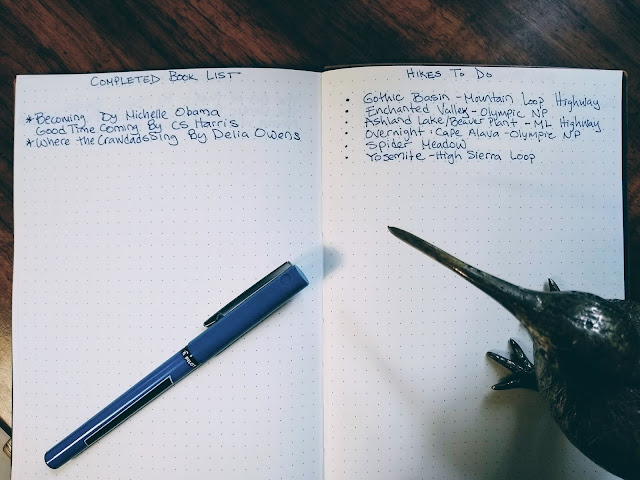 COMPLETED BOOK LIST
*Becoming By Michelle Obama
Good Time Coming By CS Harris
*Where the Crawdads Sing By Delia Owens
HIKES TO DO
• Gothic Basin - Mountain Loop Highway
• Enchanted Valley - Olympic NP
• Ashland Lake/Bewer Plant - ML Highway
• Overnight: Cape Alava - Olympic NP
• Spider Meadow
• Yosemite - High Sierra Loop
PILOT